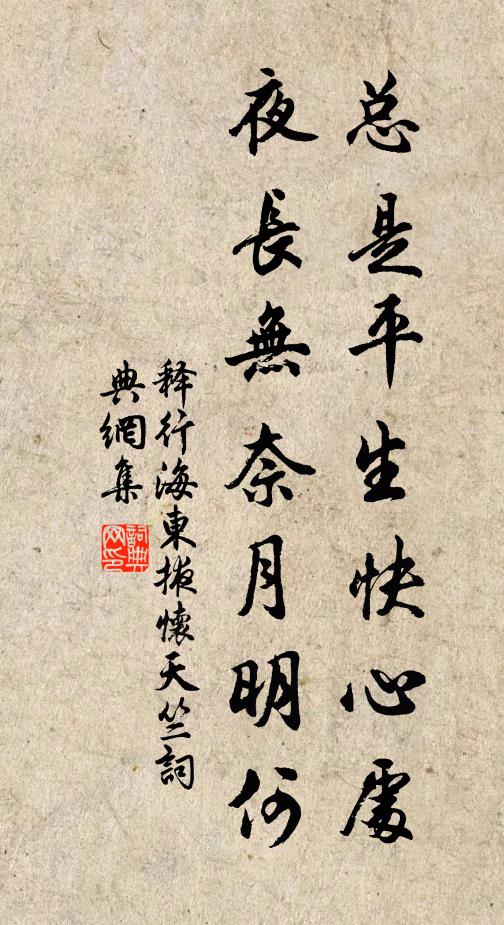 总是平生快心處
夜長無奈月明何
释行海東掖懷天竺詞
典網集
詞典网印